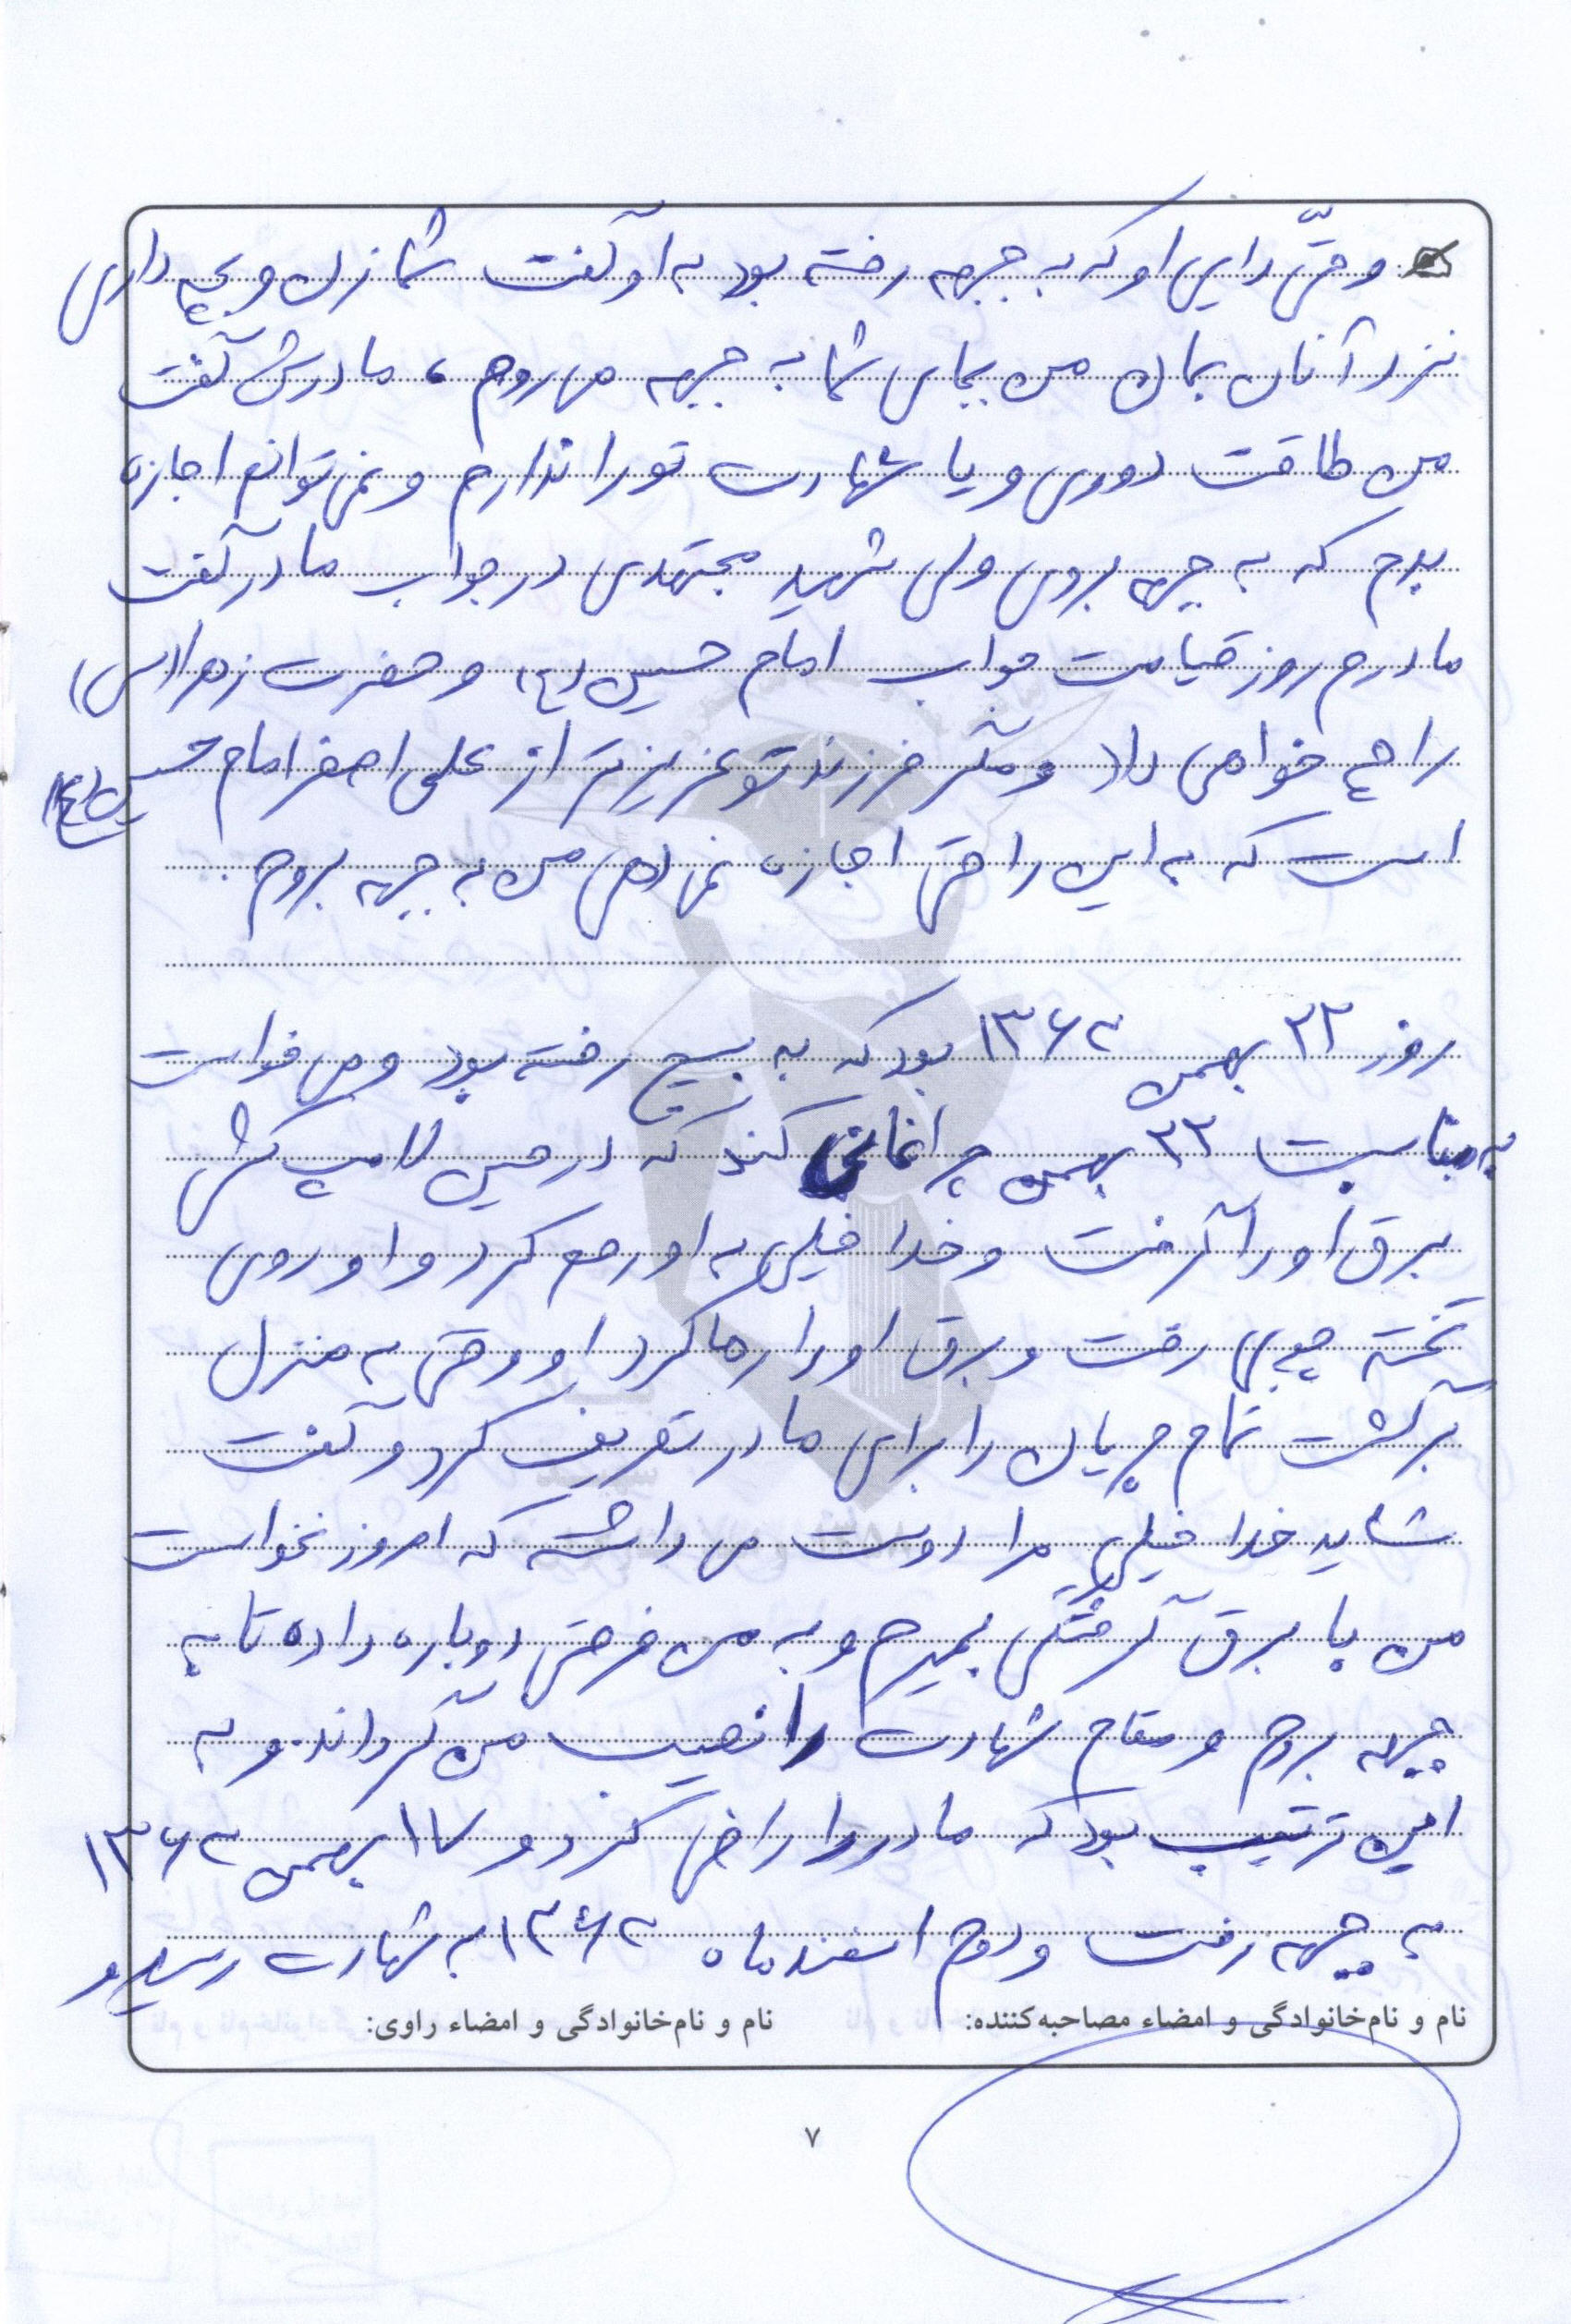 وقتی دایی او که به جبهه رفته بود به او گفت شما زن و بچه داری
نزد آنان بمان من بجای شما به جبهه می روم ، مادرش گفت
من طاقت دوری و یا شهادت تو را ندارم و نمی توانم اجازه
بدهم که به جبهه بروی ولی شهید مجتهدی در جواب مادر گفت
مادرم روز قیامت جواب امام حسین (ع) و حضرت زهرا (س)
را چه خواهی داد و مگر فرزند تو عزیزتر از علی اصغر امام حسین (ع)
است که به این راحتی اجازه نمی دهی من به جبهه بروم .
روز ۲۲ بهمن ۱۳۶۲ بود که به بسیج رفته بود و می خواست
به مناسبت ۲۲ بهمن چراغانی کند که در حین لامپ کشی
برق او را گرفت و خدا خیلی به او رحم کرد و او روی
تخته چوبی رفت و برق او را رها کرد او وقتی به منزل
برگشت تمام جریان را برای مادر تعریف کرد و گفت
شاید خدا خیلی مرا دوست می داشته که امروز نخواست
من با برق گرفتگی بمیرم و به من فرصتی دوباره داده تا به
جبهه بروم و مقام شهادت را نصیب من گرداند. و به
این ترتیب بود که مادر را راضی کرد و ۱۷ بهمن ۱۳۶۲
به جبهه رفت و دوم اسفند ماه ۱۳۶۲ به شهادت رسید و
نام و نام‌خانوادگی و امضاء مصاحبه‌کننده: نام و نام‌خانوادگی و امضاء راوی:
۷